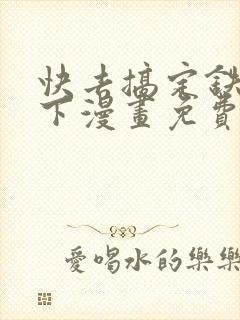 快去搞定鉄
下漫畫免費
愛喝水的樂樂